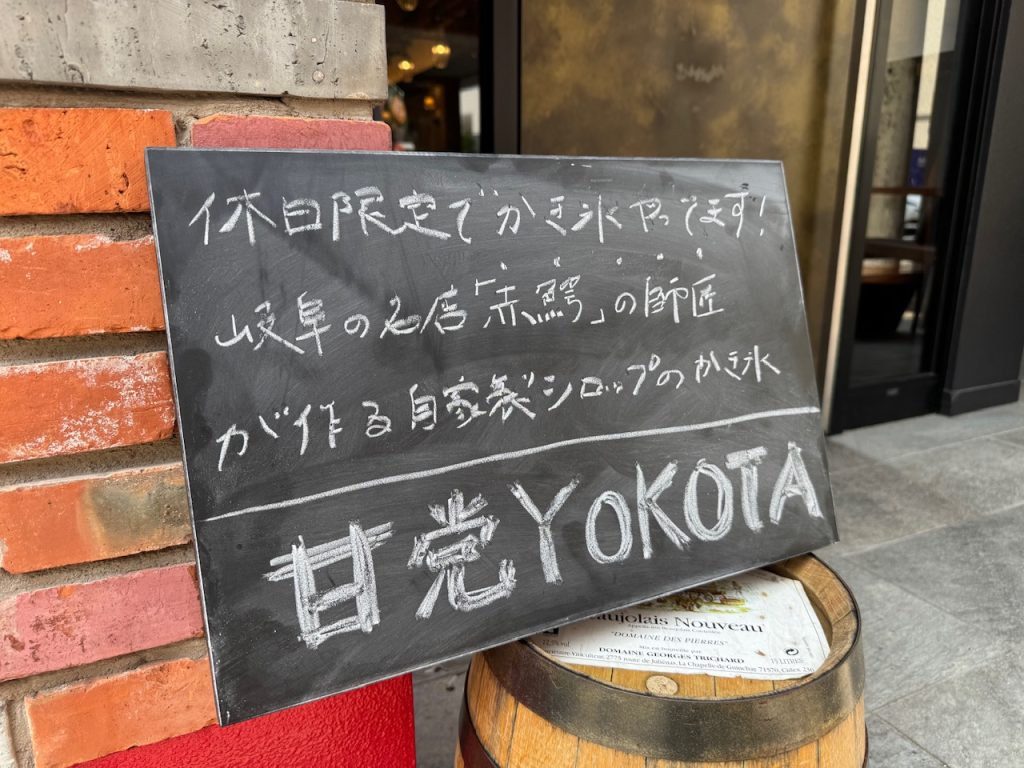 休日限定でかき氷やってます!
岐阜の名店「赤鰐」の師匠
が作る自家製シロップのかき氷
甘党YOKOTA
aujolais Nouveau
"DOMAINE DES PIERRES"
Mis en bouteille par
DOMAINE GEORGES TRICHARD
15 LITRES